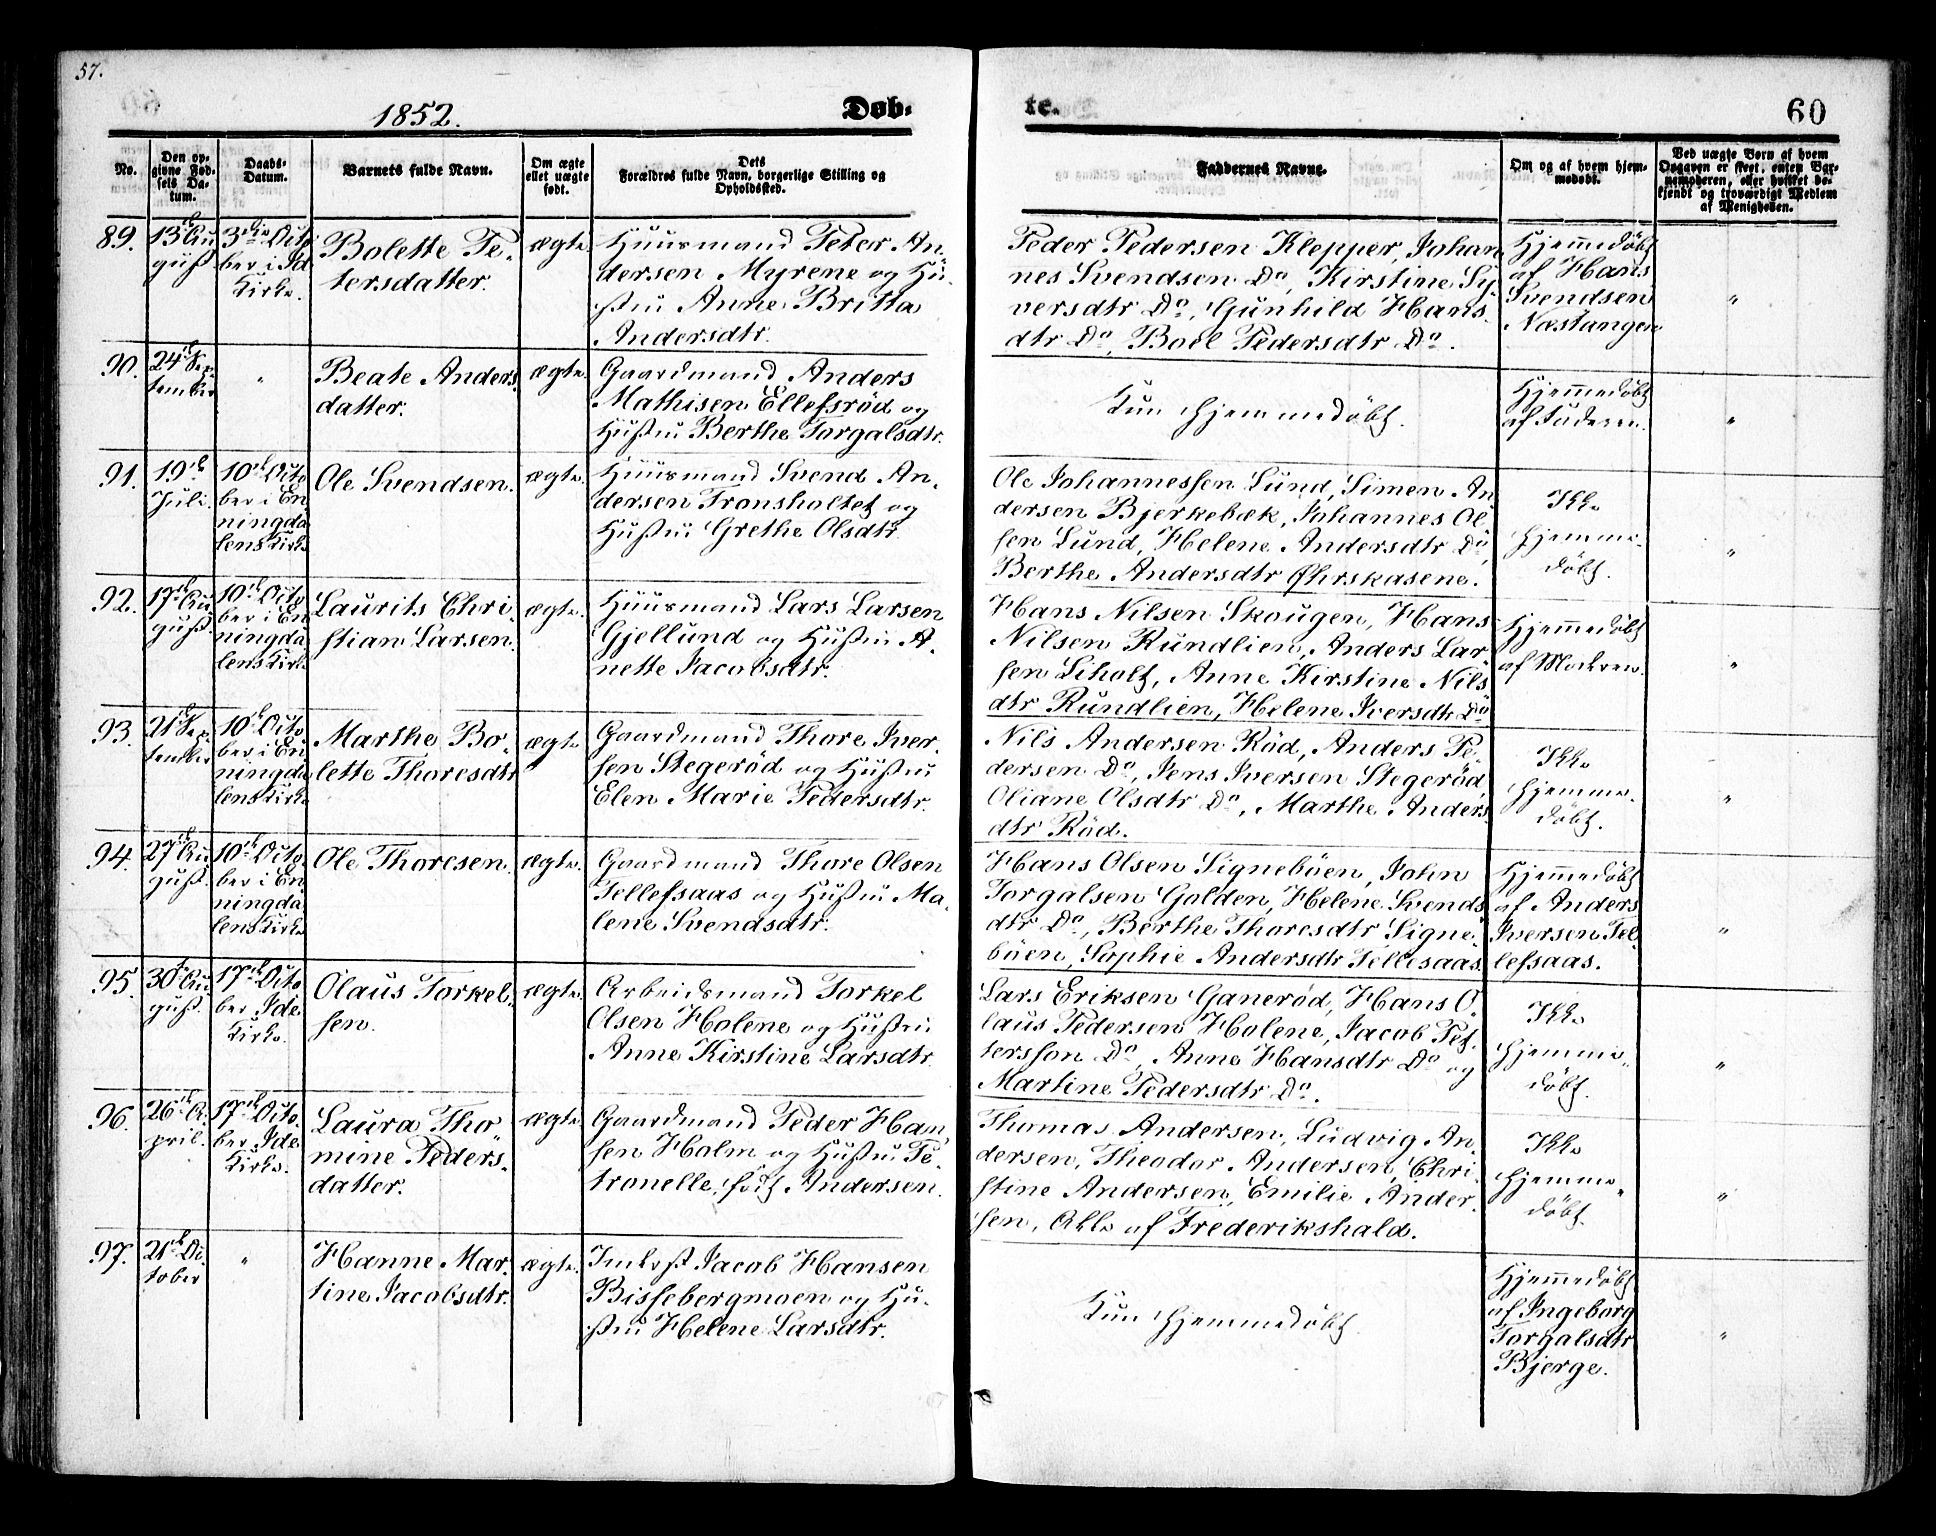 57.
1852.
Døb-
te.
60
No.
Den op-
givne Fød-
sels Da-
tum.
Daabs-
Datum.
Barnets fulde Navn.
Om ægte
ellet uægte
født.
Dets
Forældres fulde Navn, borgerlige Stilling og
Opholdssted.
Faddernes Navne.
Om og af hvem hjem-
medøbt.
Ved uægte Børn af hvem
Opgaven er skeet, enten Bar-
nemoderen, eller hvilket be-
kjendt og troværdigt Medlem
af Menigheden.
89.
13de Au
gust
3die Octo
ber i Id
Kirke.
Bolette Pe-
tersdatter.
ægte
Huusmand Peter An-
dersen Myrene og Hu-
stru Anne Britta
Andersdtr.
Peder Pedersen Klepper, Johan
nes Svendsen Do, Kirstine Sy
versdtr Do, Gunhild Hans-
dtr Do, Boel Pedersdtr Do.
Hjemmedøbt
af Hans
Svendsen
Næstangen
"
90.
24de Sep
tember
"
Beate Anders
datter.
ægte.
Gaardmand Anders
Mathisen Ellefsrød og
Hustru Berthe Torgalsdtr.
Kun hjemmedøbt.
Hjemmedøbt
af Faderen.
"
91.
19de
Juli
10de Octo
ber i En
ningda
lens Kirke
Ole Svendsen.
ægte.
Huusmand Svend An-
dersen Fronsholtet og
Hustru Grethe Olsdtr
Ole Johannessen Lund, Simen An
dersen Bjerkebæk, Johannes Ol-
sen Lund, Helene Andersdtr Do,
Berthe Andersdtr Øhrskasene.
Ikke
hjemme-
døbt.
"
92.
17de Au
gust.
10de Octo
ber i En
ningda
lens Kirke
Laurits Chri-
stian Larsen.
ægte.
Huusmand Lars Larsen
Gjellund og Hustru A-
nette Jacobsdtr.
Hans Nilsen Skougen, Hans
Nilsen Rundlien, Anders Lar-
sen Liholt, Anne Kirstine Nils
dtr Rundlien, Helene Iversdtr Do
Hjemmedøbt
af Modren.
"
93.
21de Sep
tember
10de Octo
ber i En
ningda
lens Kirke
Marthe Bo-
lette Thoresdtr
ægte
Gaardmand Thore Iver-
sen Stegerød og Hustru
Elen Marie Pedersdtr.
Nils Andersen Rød, Anders Pe-
dersen Do, Jens Iversen Stegerød,
Oliane Olsdtr Do, Marthe Anders
dtr Rød.
Ikke
hjemme-
døbt.
"
94.
27de Au
gust.
10de Octo
ber i En
ningda
lens Kirke
Ole Thoresen.
ægte.
Gaardmand Thore Olsen
Tellefsaas og Hustru Ma-
lene Svendsdtr.
Hans Olsen Signebøen, John
Torgalsen Golden, Helene Svends
dtr Do, Berthe Thoresdtr Signe-
bøen, Sophie Andersdtr Tellesaas.
Hjemmedøbt
af Anders
Iversen Tel
lefsaas.
"
95.
30te Au
gust.
17de Octo
ber Ide
Kirke.
Olaus Torkel-
sen.
ægte.
Arbeidsmand Torkel
Olsen Holene og Hustru
Anne Kirstine Larsdtr
Lars Eriksen Ganerød, Hans O-
laus Pedersen Holene, Jacob Pet-
tersson Do, Anne Hansdtr Do og
Martine Pedersdtr Do.
Ikke
hjemme-
døbt.
"
96.
26de A-
pril.
17de Octo-
ber Ide
Kirke.
Laura Tho-
mine Peders-
datter.
ægte.
Gaardmand Peder Han-
sen Holm og Hustru Pe-
tronelle, født Andersen.
Thomas Andersen, Ludvig An-
dersen, Theodor Andersen, Chri-
stine Andersen, Emilie Ander-
sen, Alle af Frederikshald.
Ikke
hjemme-
døbt.
"
97.
21de Oc
tober
"
Hanne Mar-
tine Jacobsdtr.
ægte.
Inderst Jacob Hansen
Bissebergmoen og Hu-
stru Helene Larsdtr.
Kun hjemmedøbt.
Hjemmedøbt
af Ingeborg
Torgalsdtr
Bjerge.
"